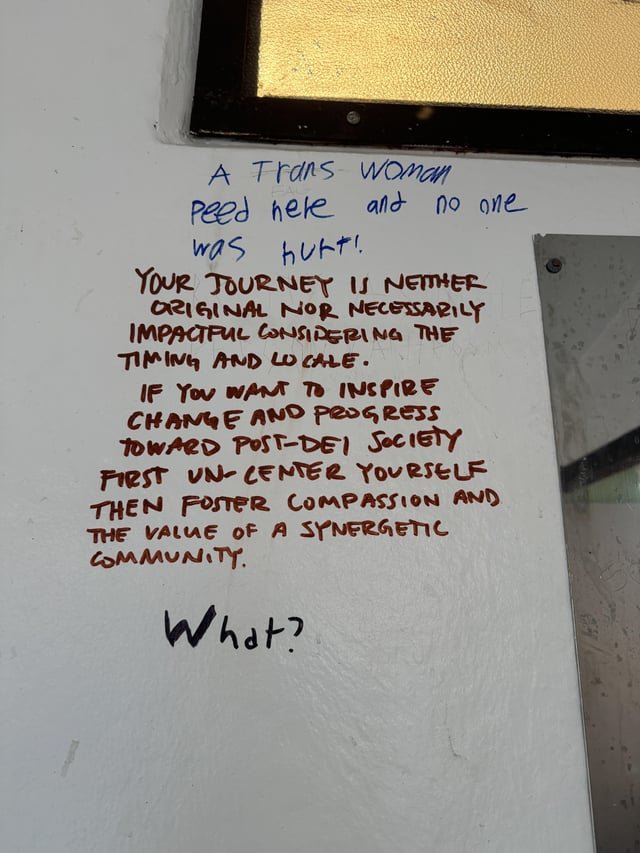 A Trans Woman
peed here and no one
was hurt!
YOUR JOURNEY IS NEITHER
ORIGINAL NOR NECESSARILY
IMPACTFUL CONSIDERING THE
TIMING AND LOCALE.
IF YOU WANT TO INSPIRE
CHANGE AND PROGRESS
TOWARD POST-DEI SOCIETY
FIRST UN-CENTER YOURSELF
THEN FOSTER COMPASSION AND
THE VALUE OF A SYNERGETIC
COMMUNITY.
What?